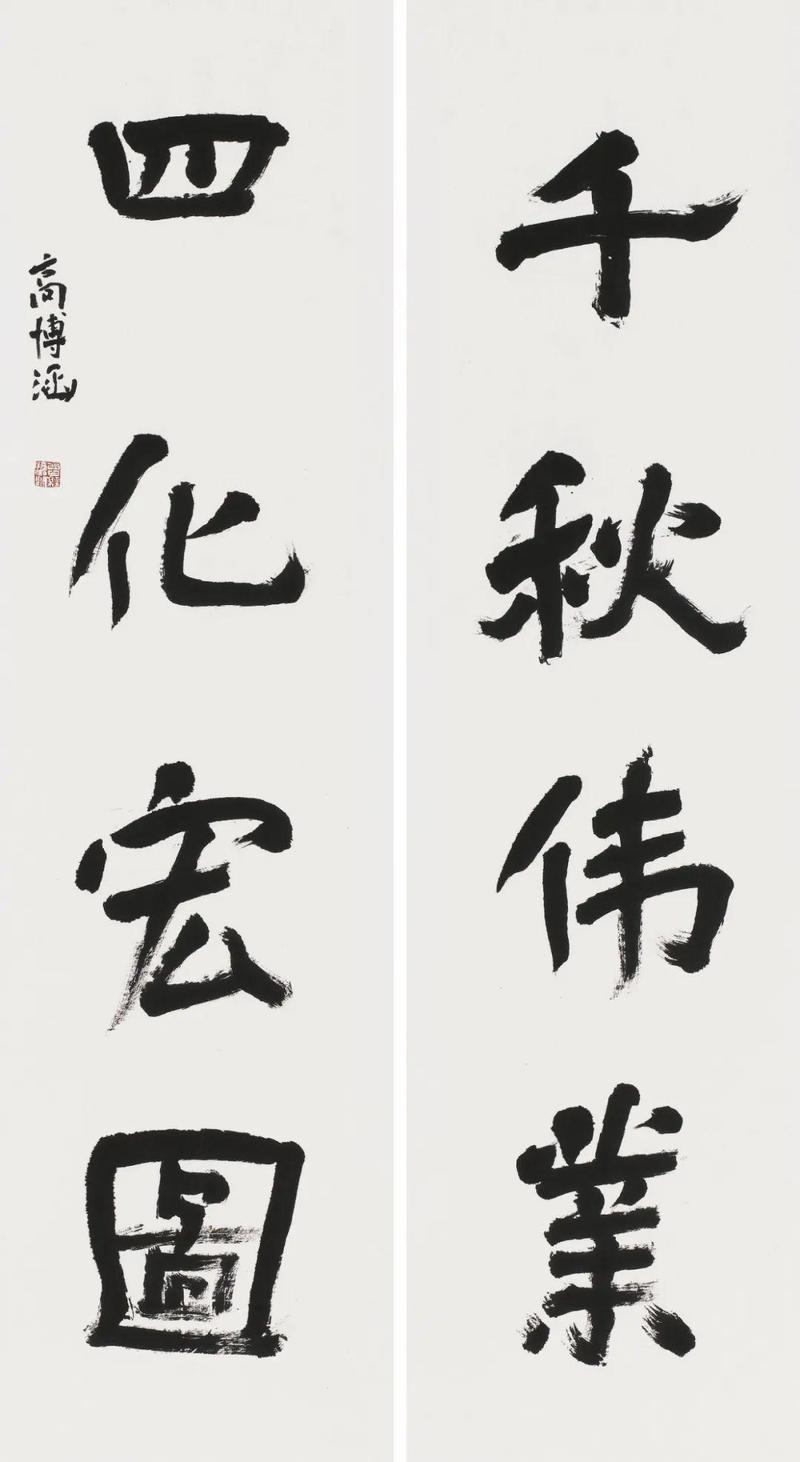 千秋伟業
四化宏圖
高博涵